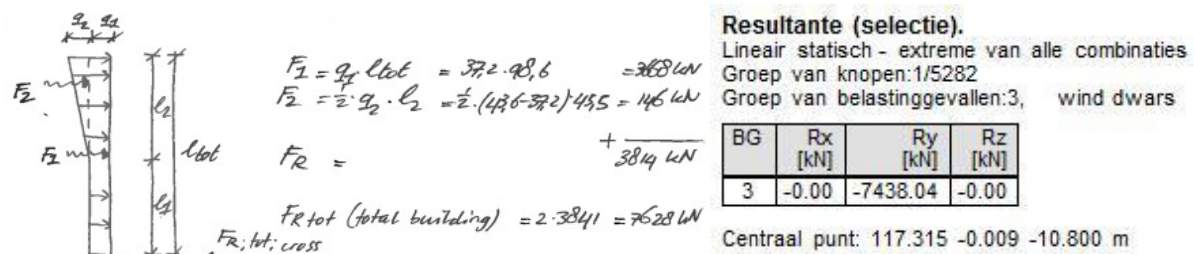 q2 q1
F2
F1
l2
l1
ltot
F1 = q1 ltot = 37,2 · 98,6 = 3668 kN
F2 = 1/2 · q2 · l2 = 1/2 · (43,6-37,2) · 45,5 = 146 kN
+
FR = 3814 kN
FR tot (total building) = 2 · 3841 = 7628 kN
FR; tot; cross
Resultante (selectie).
Lineair statisch - extreme van alle combinaties
Groep van knopen:1/5282
Groep van belastinggevallen:3, wind dwars
BG Rx [kN] Ry [kN] Rz [kN]
3 -0.00 -7438.04 -0.00
Centraal punt: 117.315 -0.009 -10.800 m